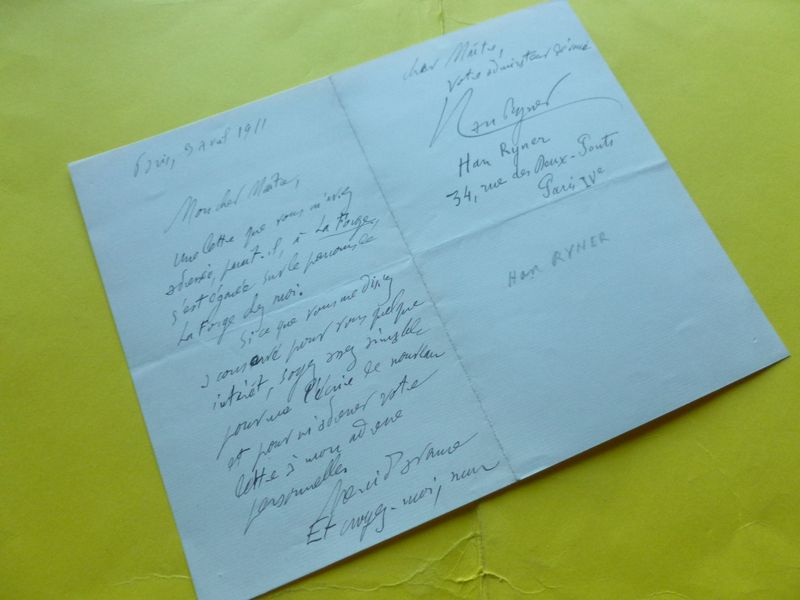 Paris, 9 avril 1911
Mon cher Maître,
Une lettre que vous m'aviez
adressée, paraît-il, à La Forge,
s'est égarée sur le parcours
La Forge chez moi.
Si ce que vous me disiez
a conservé pour vous quelque
intérêt, soyez assez aimable
pour me l'écrire de nouveau
et pour m'adresser votre
lettre à mon adresse
personnelle.
Merci d'avance
Et croyez-moi, mon
cher Maître,
votre admirateur
Han Ryner
Han Ryner
34, rue des Deux-Ponts
Paris IVe
Han RYNER